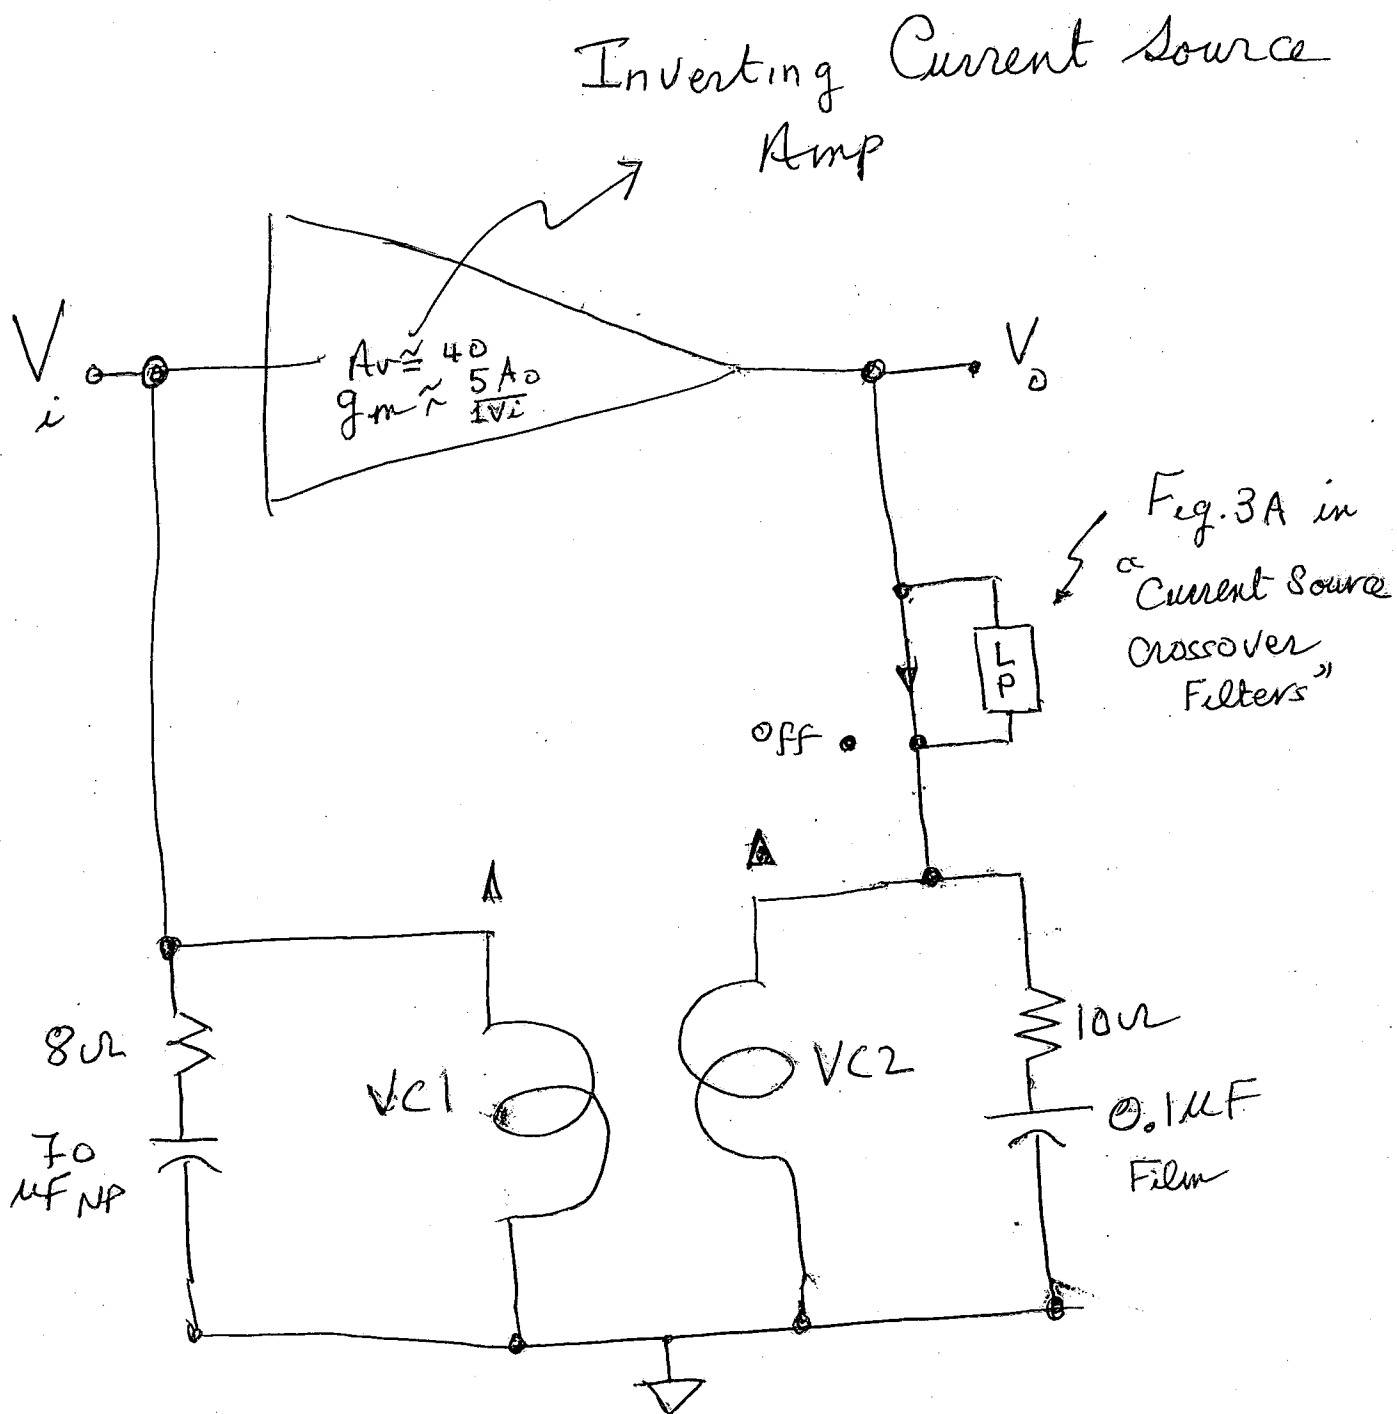 Inverting Current Source
Amp
Av ≅ 40
gm ≈ 5Ao
1Vi
Vi
Vo
Fig. 3A in
"Current Source
Crossover
Filters"
LP
off
8Ω
70
µF NP
VC1
VC2
10Ω
0.1µF
Film